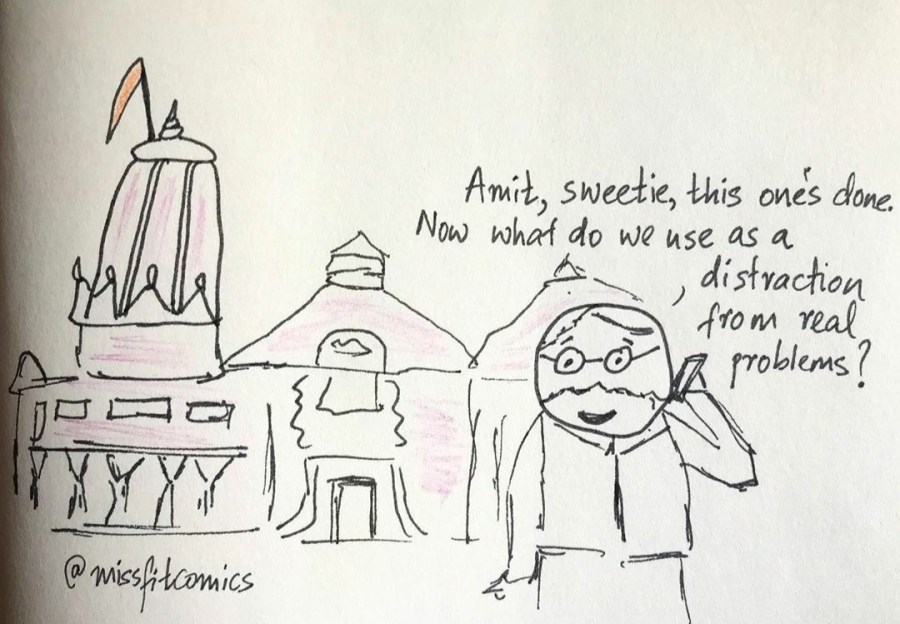 Amit, sweetie, this one's done.
Now what do we use as a
distraction
from real
problems?
@missfitcomics